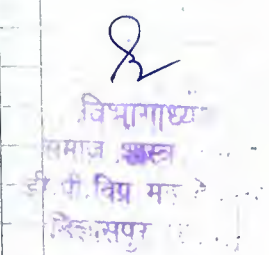 विभागाध्य
समाज शास्त्र
डी पी. विप्र मह
बिलासपुर